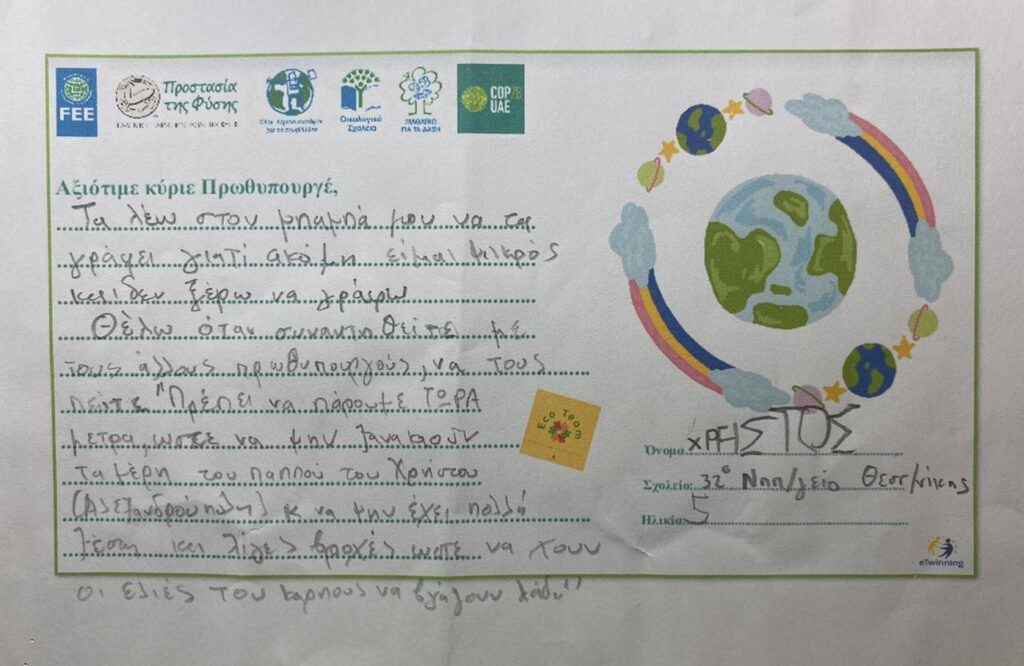 FEE
Προστασία
της Φύσης
Οικολογικά
Σχολεία
ΜΑΘΑΙΝΩ
ΓΙΑ ΤΑ ΔΑΣΗ
COP28
UAE
Αξιότιμε κύριε Πρωθυπουργέ,
Τα λέω στον μπαμπά μου να τα
γράψει γιατί ακόμη είμαι μικρός
και δεν ξέρω να γράφω
Θέλω όταν συναντηθείτε με
τους άλλους πρωθυπουργούς, να τους
πείτε "Πρέπει να πάρουμε ΤΩΡΑ
μετρα, ωστε να μην ξανακαουν
τα μέρη του παππού του Χρήστου
(Αλεξανδρούπολη) κ να μην έχει πολλή
ζέστη και λίγες βροχές ωστε να χουν
οι ελιές του καρπους να βγάζουν λάδι"
Eco Team
Όνομα ΧΡΗΣΤΟΣ
Σχολείο: 32ο Νηπ/γείο Θεσ/νίκης
Ηλικία: 5
eTwinning